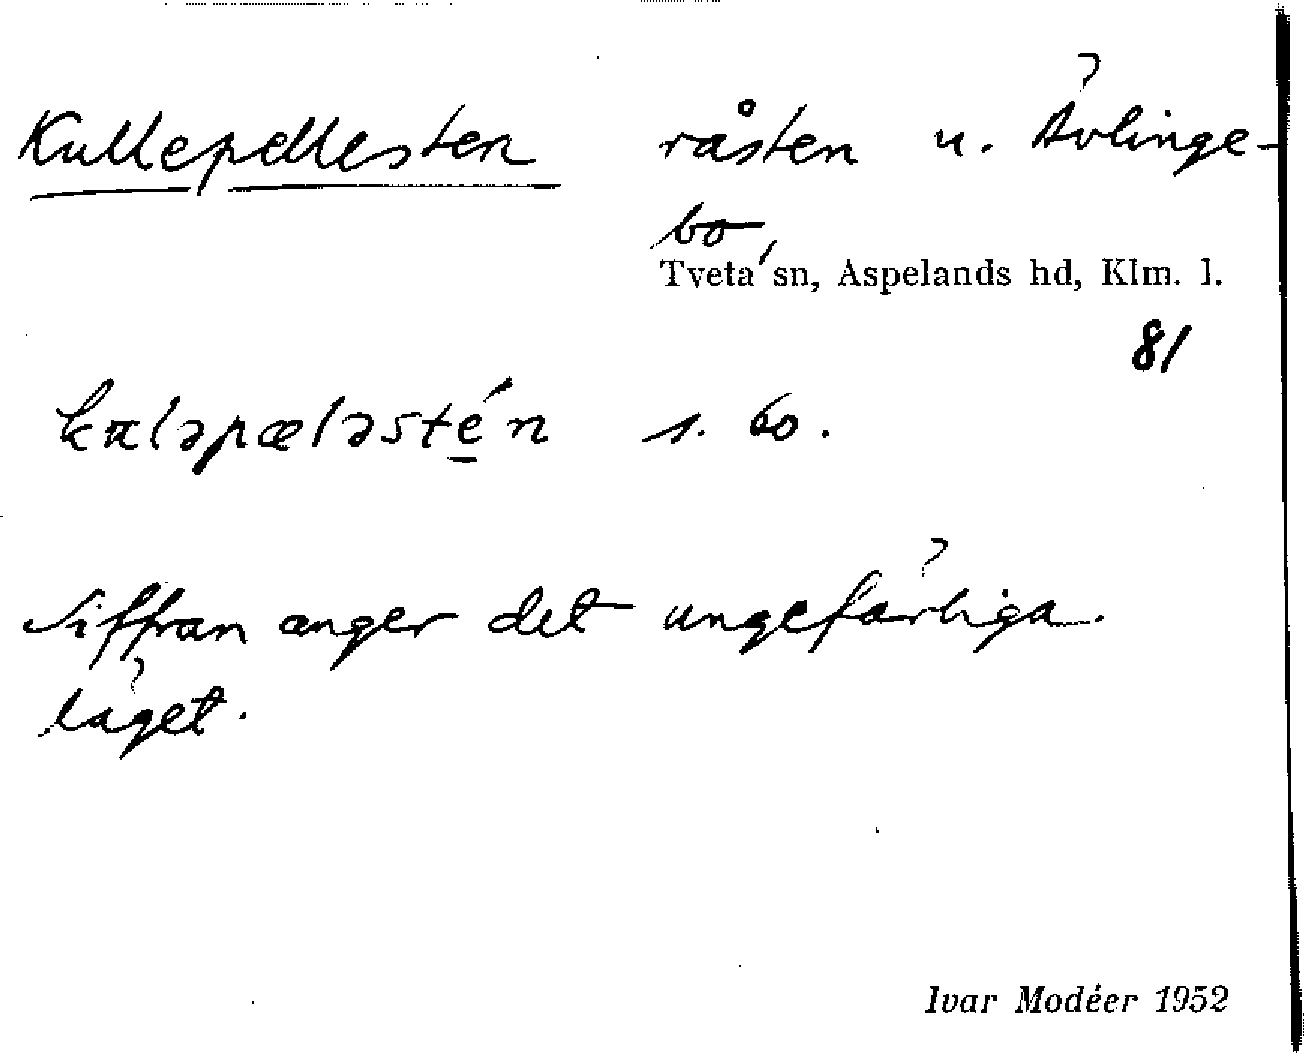 Kullepellesten råsten u. Ävlinge-
bo,
Tveta sn, Aspelands hd, Klm. l.
81
s. bo.
Siffran anger det ungefärliga
läget.
Ivar Modéer 1952